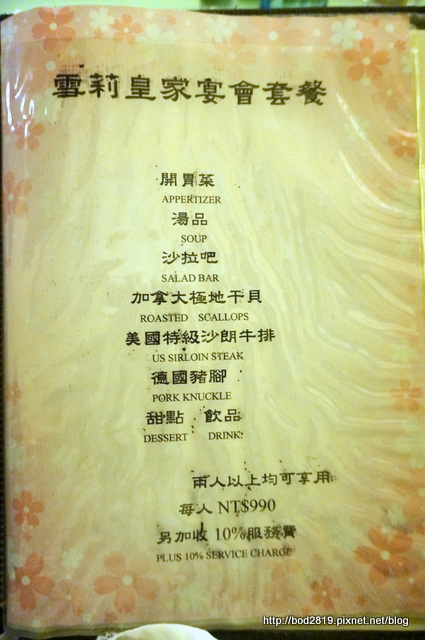 雪莉皇家宴會套餐
開胃菜
APPERTIZER
湯品
SOUP
沙拉吧
SALAD BAR
加拿大極地干貝
ROASTED SCALLOPS
美國特級沙朗牛排
US SIRLOIN STEAK
德國豬腳
PORK KNUCKLE
甜點 飲品
DESSERT DRINK
兩人以上均可享用
每人 NT$990
另加收 10%服務費
PLUS 10% SERVICE CHARGE
http://bod2819.pixnet.net/blog